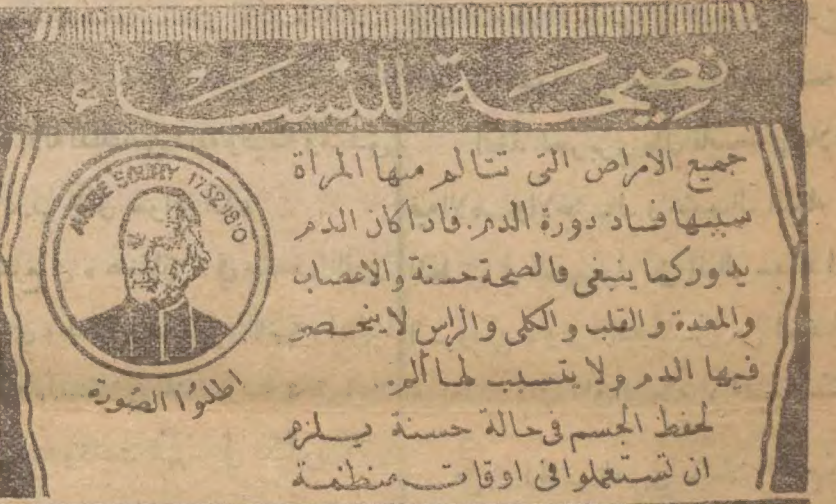 نصيحة للنساء
ABBE SOURY 1732-1810
اطلبوا الصورة
جميع الامراض التى تتالم منها المراة
سببها فساد دورة الدم. فاداكان الدم
يدوركما ينبغى فالصحة حسنة والاعصاب
والمعدة والقلب والكلى والراس لاينحصر
فيها الدم ولا يتسبب لها ألم.
لحفظ الجسم فى حالة حسنة يسلزم
ان تستعملوا فى اوقات منظمة